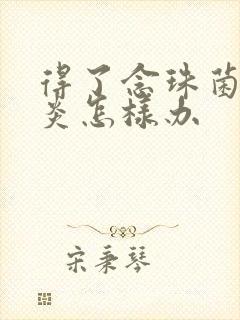 得了念珠菌
炎怎样办
宋秉琴